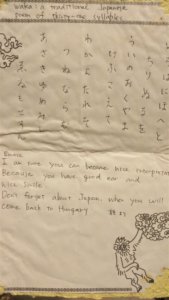 Waka is a traditional Japanese
poem of thirty-one syllables
いろはにほへと
ちりぬるを
わかよたれそ
つねならむ
けふこえて
あさきゆめみし
ゑひもせす
Emese
I am sure you can become nice interpreter
Because you have good ear and
nice smile.
Don't forget about Japan, when you will
come back to Hungary